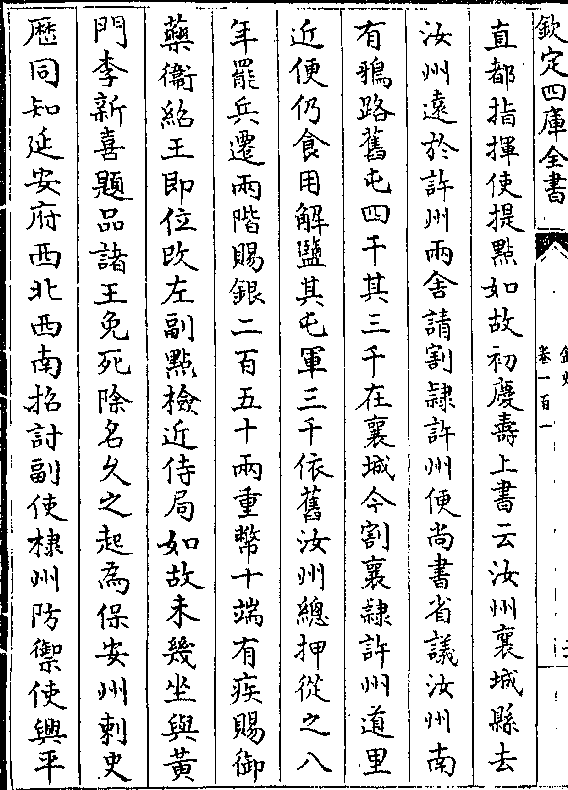 欽定四庫全書
金史
卷一百一
直都指揮使提㸃如故初慶壽上書云汝州襄城縣去
汝州遠於許州兩舍請割𨽻許州便尚書省議汝州南
有鴉路舊屯四千其三千在襄城今割襄𨽻許州道里
近便仍食用解鹽其屯軍三千依舊汝州總押從之八
年罷兵遷兩階賜銀二百五十兩重幣十端有疾賜御
藥衛紹王即位改左副㸃檢近侍局如故未幾坐與黄
門李新喜題品諸王免死除名久之起為保安州刺史
歴同知延安府西北西南招討副使棣州防禦使興平